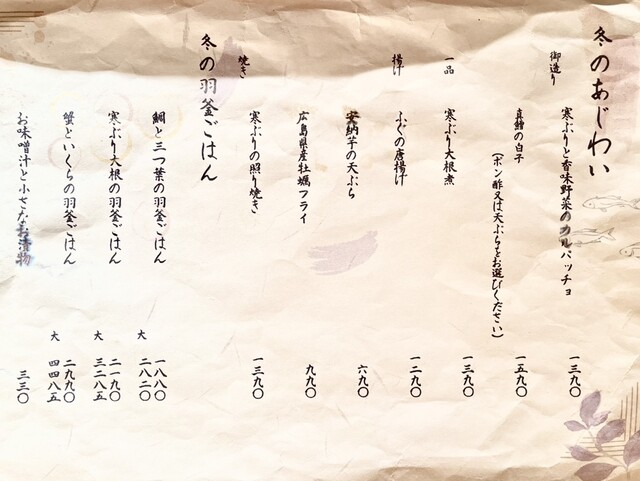 冬のあじわい
御造り
寒ぶりと香味野菜のカルパッチョ
一三九〇
真鱈の白子
(ポン酢又は天ぷらをお選びください)
一五九〇
一品
寒ぶり大根煮
一三九〇
揚げ
ふぐの唐揚げ
一二九〇
安納芋の天ぷら
六九〇
広島県産牡蠣フライ
九九〇
焼き
寒ぶりの照り焼き
一三九〇
冬の羽釜ごはん
鯛と三つ葉の羽釜ごはん
一八八〇
大 二八二〇
寒ぶり大根の羽釜ごはん
二一九〇
大 三二八五
蟹といくらの羽釜ごはん
二九九〇
大 四四八五
お味噌汁と小さなお漬物
三三〇